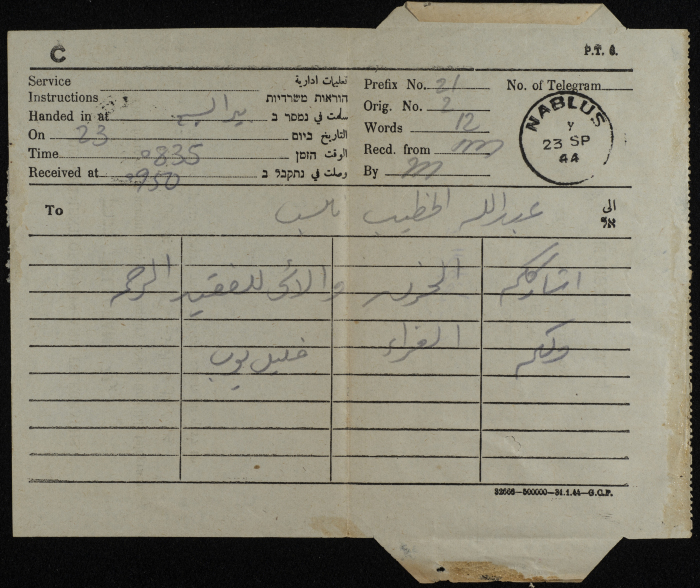 C
P.T. 6.
Service تعليمات ادارية
Instructions הוראות משרדיות
Handed in at سلمت في נמסר ב
On 23 التاريخ ביום
Time 0835 الوقت הזמן
Received at 0950 وصلت في נתקבל ב
Prefix No. 21 No. of Telegram
Orig. No. 2
Words 12
Recd. from
By
NABLUS
Y
23 SP
44
To عبدالله الخطيب الى
אל
اشارككم الحزن والاسى للفقيد الرحمه
ولكم العزاء خليل
32666—500000—31.1.44—G.C.P.